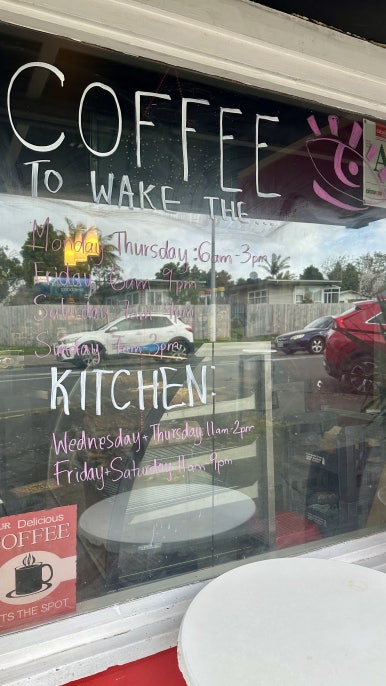 COFFEE
TO WAKE THE....
Monday-Thursday: 6am-3pm
Friday 6am 9pm
Saturday 7am 9pm
Sunday 7am-3pm
KITCHEN:
Wednesday + Thursday: 11am-2pm
Friday + Saturday: 11am 9pm
UR Delicious
OFFEE
TS THE SPOT